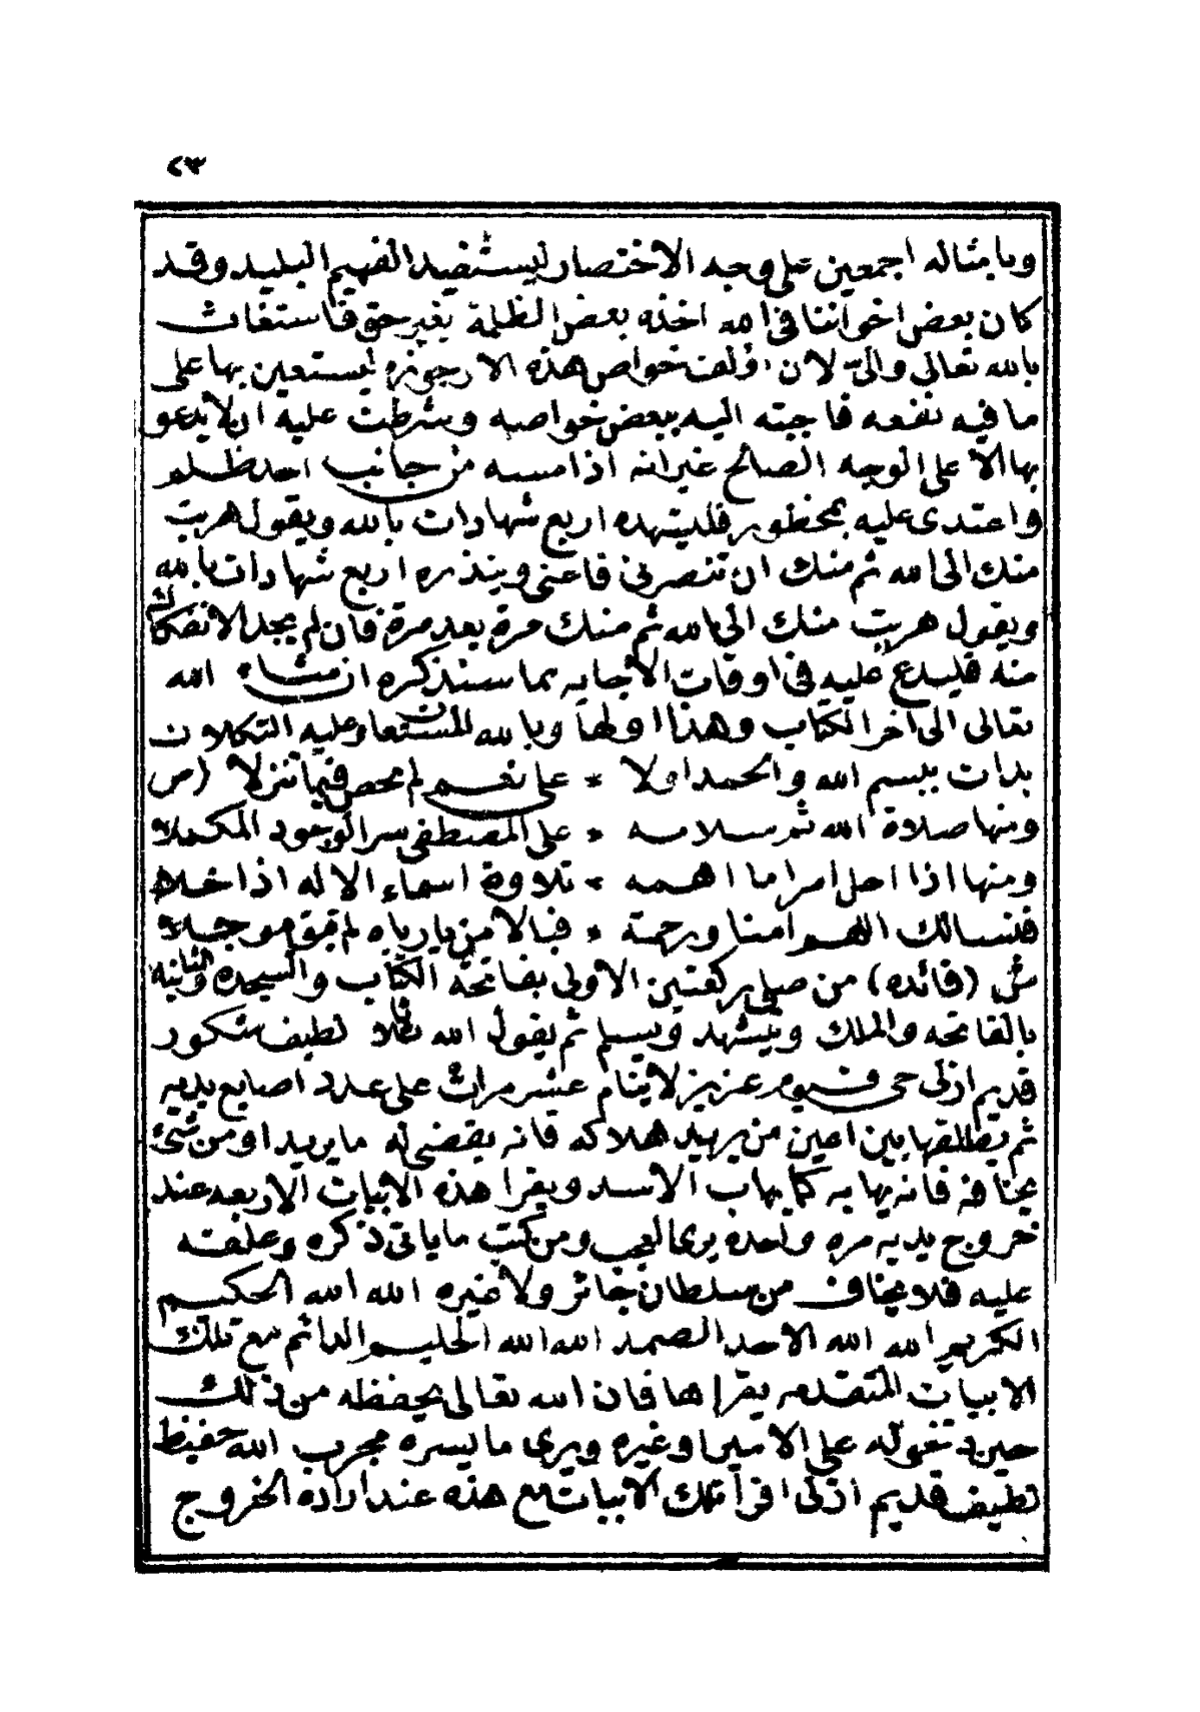 ٢٣
وبامثاله اجمعين على وجه الاختصار ليستفيد الفهيم البليد وقد
كان بعض اخواننا فى الله اخذه بعض الظلمة بغير حق فاستغاث
بالله تعالى والىّ لان اؤلف خواص هذه الارجوزه ليستعين بها على
ما فيه نفعه فاجبته اليه ببعض خواصه وشرطت عليه ان لا يدعو
بها الا على الوجه الصالح غير انه اذا مسه من جانب احد ظلم
واعتدى عليه بمحظور فليشهده اربع شهادات بالله ويقول هربت
منك الى الله ثم منك ان تنصرنى فاعنى وينذره اربع شهادات بالله
ويقول هربت منك الى الله ثم منك مرة بعد مرة فان لم يجد الانفكاك
منه فليدع عليه فى اوقات الاجابه بما سنذكره ان شاء الله
تعالى الى آخر الكتاب وهذا اولها وبالله المستعان وعليه التكلان
بدات ببسم الله والحمد اولا * على نعم لم تحص فيما تنزلا (ص)
ومنها صلاة الله ثم سلامه * على المصطفى سر الوجود المكملا
ومنها اذا احل امر اما اهمه * تلاوة اسماء الاله اذا خلا
فنسالك اللهم امنا ورحمة * فبالامن يارباه لم تبق موجلا
ش (فائده) من صلى ركعتين الاولى بفاتحة الكتاب والسجده والثانيه
بالفاتحه والملك ويتشهد ويسلم ثم يقول الله لطيف شكور
قديم ازلى حى قيوم عزيز لا ينام عشر مرات على عدد اصابع يديه
ثم يطلقها بين اعين من يريد هلاكه فانه يقضى له ما يريد او من شئ
يخافه فانه يهابه كما يهاب الاسد ويقرا هذه الابيات الاربعه عند
خروج يديه مره واحده يرى العجب ومن كتب ما ياتى ذكره وعلقته
عليه فلا يخاف من سلطان جائر ولا غيره الله الله الحكيم
الكريم الله الله الاحد الصمد الله الله الحليم الدائم مع تلك
الابيات المتقدمه يقراها فان الله تعالى يحفظه من ذلك
حين تقوله على الامير او غيره ويرى ما يسره مجرب الله حفيظ
لطيف قديم ازلى اقرا تلك الابيات مع هذه عند اراده الخروج